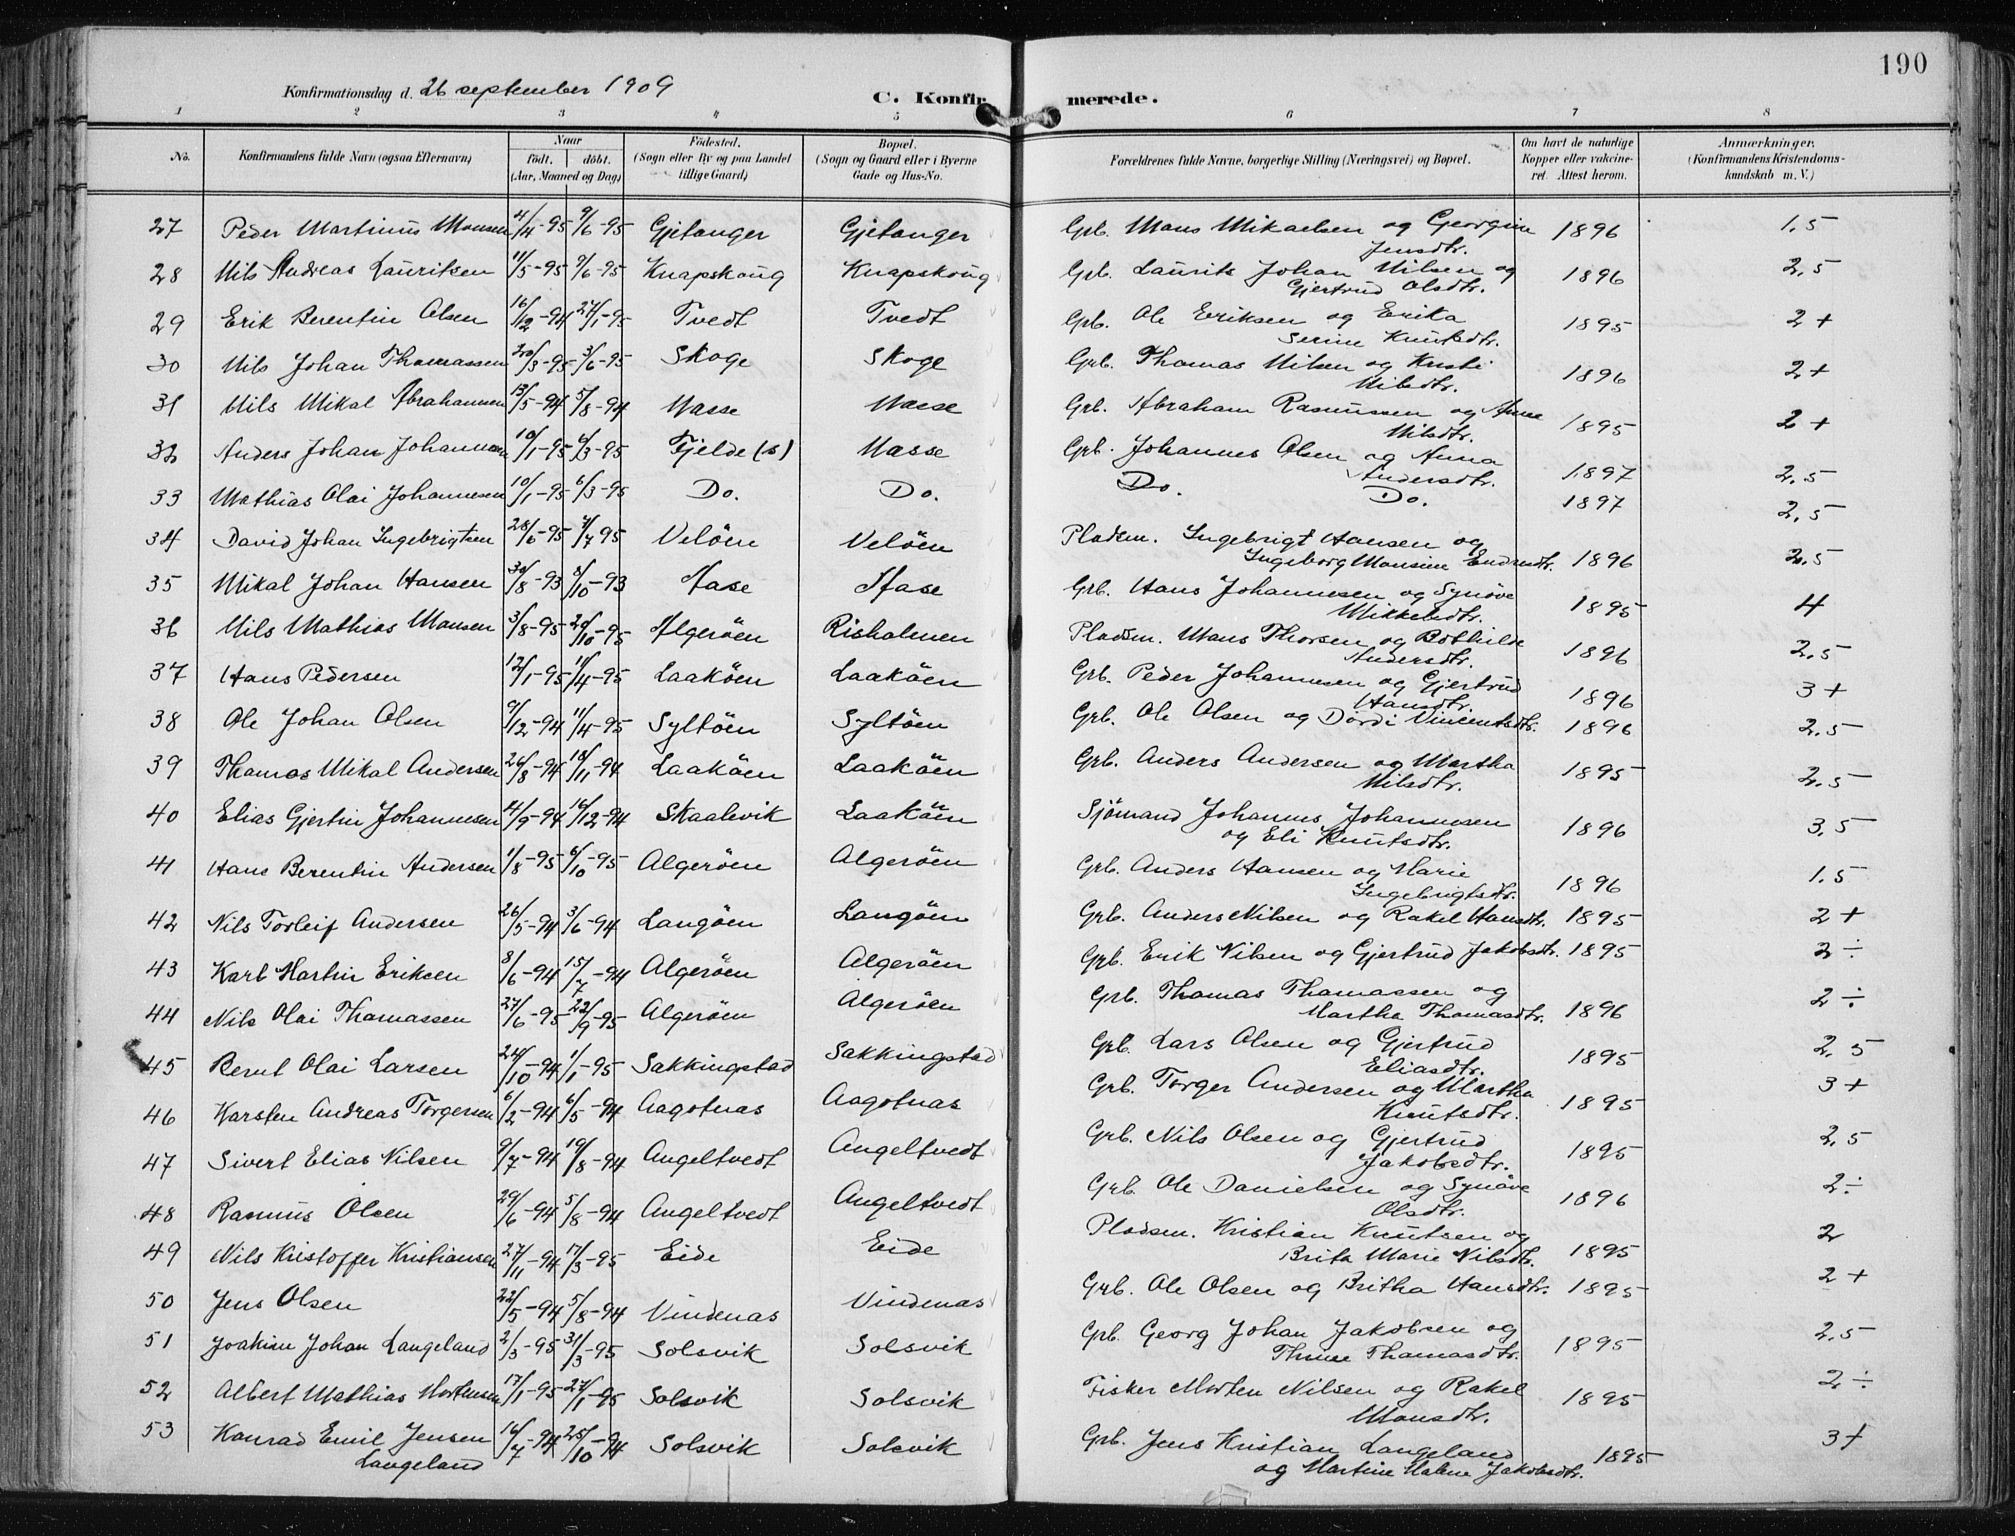 190
Konfirmationsdag d. 26 september 1909
C. Konfirmerede.
1 2 3 4 5 6 7 8
No. Konfirmandens fulde Navn (ogsaa Efternavn) Naar født. døbt. (Aar, Maaned og Dag) Födested. (Sogn eller By og paa Landet tillige Gaard) Bopæl. (Sogn og Gaard eller i Byerne Gade og Hus-No. Forældrenes fulde Navne, borgerlige Stilling (Næringsvei) og Bopæl. Om havt de naturlige Kopper eller vakcineret. Attest herom. Anmærkninger. (Konfirmandens Kristendomskundskab m. V.)
27 Peder Martinus Monsen 4/4-95 9/6-95 Gjetanger Gjetanger Grb. Mons Mikaelsen og Georgine Jensdtr. 1896 1,5
28 Nils Andreas Lauritsen 11/5-95 9/6-95 Knapskoug Knapskoug Grb. Laurits Johan Nilsen og Gjertrud Olsdtr. 1896 2,5
29 Erik Berentin Olsen 16/12-94 27/1-95 Tvedt Tvedt Grb. Ole Eriksen og Erika Serine Knutsdtr. 1895 2+
30 Nils Johan Thomassen 20/3-95 3/6-95 Skoge Skoge Grb. Thomas Nilsen og Kristi Nilsdtr. 1896 2+
31 Nils Mikal Abrahamsen 13/5-94 5/8-94 Vasse Vasse Grb. Abraham Rasmussen og Anne Nilsdtr. 1895 2+
32 Anders Johan Johannesen 10/1-95 6/3-95 Fjelde (s) Vasse Grb. Johannes Olsen og Anna Andersdtr. 1897 2,5
33 Mathias Olai Johannesen 10/1-95 6/3-95 Do. Do. Do. Do. 1897 2,5
34 David Johan Ingebrigtsen 28/6-95 7/7 95 Velöen Velöen Pladsm. Ingebrigt Hansen og Ingeborg Monsine Endresdtr. 1896 2,5
35 Mikal Johan Hansen 30/8-93 8/10-93 Aase Aase Grb. Hans Johannesen og Synöve Mikkelsdtr. 1895 4
36 Nils Mathias Monsen 3/8-95 20/10-95 Algeröen Risholmen Pladsm. Mons Thorsen og Bothilde Andersdtr. 1896 2,5
37 Hans Pedersen 12/1-95 11/4-95 Laaköen Laaköen Grb. Peder Johannesen og Gjertrud Hansdtr. 1896 3+
38 Ole Johan Olsen 9/12-94 11/4-95 Syltöen Syltöen Grb. Ole Olsen og Dordi Vincentsdtr. 1896 2,5
39 Thomas Mikal Andersen 26/8-94 18/11-94 Laaköen Laaköen Grb. Anders Andersen og Martha Nilsdtr. 1895 2,5
40 Elias Gjertin Johannesen 4/9-94 16/12-94 Skaalevik Laaköen Sjömand Johannes Johannesen og Eli Knutsdtr. 1896 3,5
41 Hans Berentin Andersen 1/8-95 6/10-95 Algeröen Algeröen Grb. Anders Hansen og Marie Ingebrigtsdtr. 1896 1,5
42 Nils Torleif Andersen 26/5-94 3/6-94 Langöen Langöen Grb. Anders Nilsen og Rakel Hansdtr. 1895 2+
43 Karl Martin Eriksen 8/6-94 15/7-94 Algeröen Algeröen Grb. Erik Nilsen og Gjertrud Jakobsdtr. 1895 2÷
44 Nils Olai Thomassen 27/6-95 22/9-95 Algeröen Algeröen Grb. Thomas Thomassen og Martha Thomasdtr. 1896 2÷
45 Bernt Olai Larsen 24/10-94 1/1-95 Sakkingstad Sakkingstad Grb. Lars Olsen og Gjertrud Eliasdtr. 1895 2,5
46 Karsten Andreas Torgersen 6/2-94 6/5-94 Aagotnas Aagotnas Grb. Torger Andersen og Martha Knutsdtr. 1895 3+
47 Sivert Elias Nilsen 9/7-94 19/8-94 Angeltvedt Angeltvedt Grb. Nils Olsen og Gjertrud Jakobsdtr. 1895 2,5
48 Rasmus Olsen 29/6-94 5/8-94 Angeltvedt Angeltvedt Grb. Ole Danielsen og Synöve Olsdtr. 1896 2÷
49 Nils Kristoffer Kristiansen 27/11-94 17/3-95 Eide Eide Pladsm. Kristian Knutsen og Brita Marie Nilsdtr. 1895 2
50 Jens Olsen 22/5-94 5/8-94 Vindenas Vindenas Grb. Ole Olsen og Britha Hansdtr. 1895 2+
51 Joakim Johan Langeland 2/3-95 31/3-95 Solsvik Solsvik Grb. Georg Johan Jakobsen og Trine Thomasdtr. 1895 2,5
52 Albert Mathias Mortensen 17/1-95 27/1-95 Solsvik Solsvik Fisker Morten Nilsen og Rakel Monsdtr. 1895 2÷
53 Konrad Emil Jensen Langeland 16/7-94 25/10-94 Solsvik Solsvik Grb. Jens Kristian Langeland og Martine Malene Jakobsdtr. 1895 3+